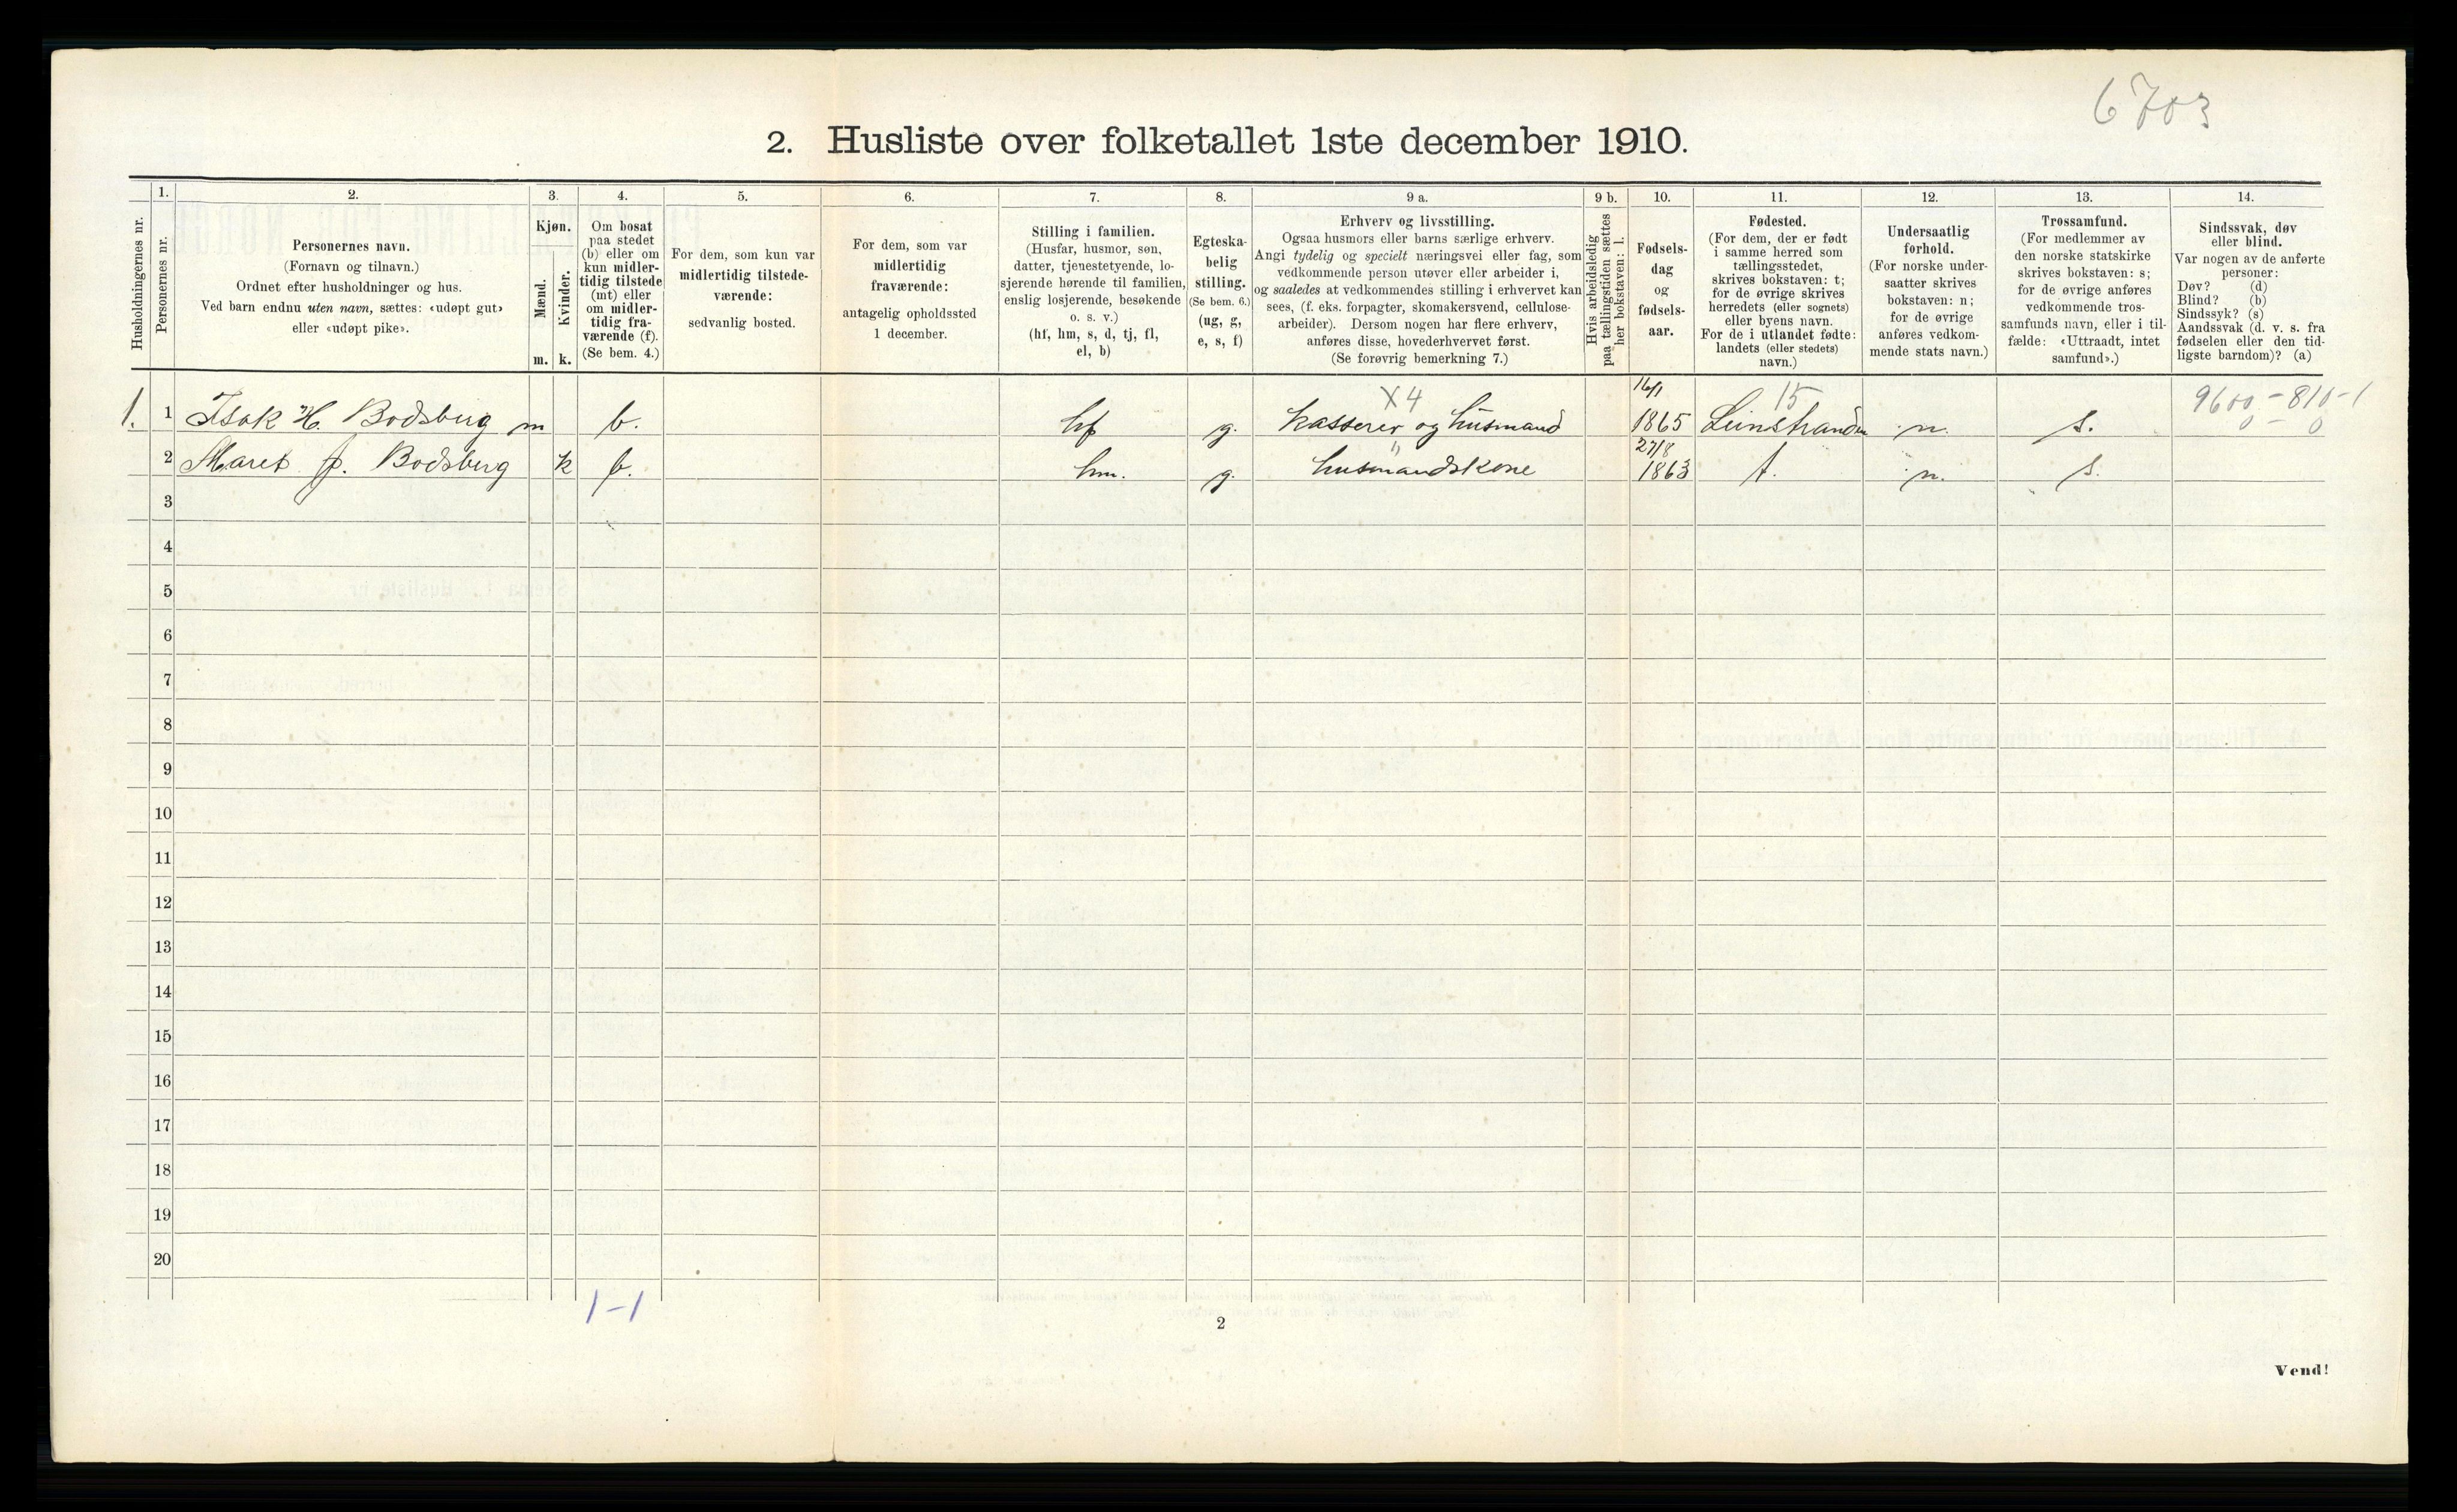 6703
2. Husliste over folketallet 1ste december 1910.
Husholdningernes nr.
1.
Personernes nr.
2.
Personernes navn.
(Fornavn og tilnavn.)
Ordnet efter husholdninger og hus.
Ved barn endnu uten navn, sættes: «udøpt gut»
eller «udøpt pike».
3.
Kjøn.
Mænd.
m.
Kvinder.
k.
4.
Om bosat
paa stedet
(b) eller om
kun midler-
tidig tilstede
(mt) eller
om midler-
tidig fra-
værende (f).
(Se bem. 4.)
5.
For dem, som kun var
midlertidig tilstede-
værende:
sedvanlig bosted.
6.
For dem, som var
midlertidig
fraværende:
antagelig opholdssted
1 december.
7.
Stilling i familien.
(Husfar, husmor, søn,
datter, tjenestetyende, lo-
sjerende hørende til familien,
enslig losjerende, besøkende
o. s. v.)
(hf, hm, s, d, tj, fl,
el, b)
8.
Egteska-
belig
stilling.
(Se bem. 6.)
(ug, g,
e, s, f)
9 a.
Erhverv og livsstilling.
Ogsaa husmors eller barns særlige erhverv.
Angi tydelig og specielt næringsvei eller fag, som
vedkommende person utøver eller arbeider i,
og saaledes at vedkommendes stilling i erhvervet kan
sees, (f. eks. forpagter, skomakersvend, cellulose-
arbeider). Dersom nogen har flere erhverv,
anføres disse, hovederhvervet først.
(Se forøvrig bemerkning 7.)
9 b.
Hvis arbeidsledig
paa tællingstiden sættes
her bokstaven: l.
10.
Fødsels-
dag
og
fødsels-
aar.
11.
Fødested.
(For dem, der er født
i samme herred som
tællingsstedet,
skrives bokstaven: t;
for de øvrige skrives
herredets (eller sognets)
eller byens navn.
For de i utlandet fødte:
landets (eller stedets)
navn.)
12.
Undersaatlig
forhold.
(For norske under-
saatter skrives
bokstaven: n;
for de øvrige
anføres vedkom-
mende stats navn.)
13.
Trossamfund.
(For medlemmer av
den norske statskirke
skrives bokstaven: s;
for de øvrige anføres
vedkommende tros-
samfunds navn, eller i til-
fælde: «Uttraadt, intet
samfund».)
14.
Sindssvak, døv
eller blind.
Var nogen av de anførte
personer:
Døv? (d)
Blind? (b)
Sindssyk? (s)
Aandssvak (d. v. s. fra
fødselen eller den tid-
ligste barndom)? (a)
X4 16/1 15 9600-810-1
1. 1 Isak H. Bodsberg m b. hf g. kasserer og husmand 1865 Leinstranden n. s. 0 - 0
27/8
2 Maret J. Bodsberg k b. hm. g. husmandskone 1863 t. n. s.
3
4
5
6
7
8
9
10
11
12
13
14
15
16
17
18
19
20
1-1
2
Vend!